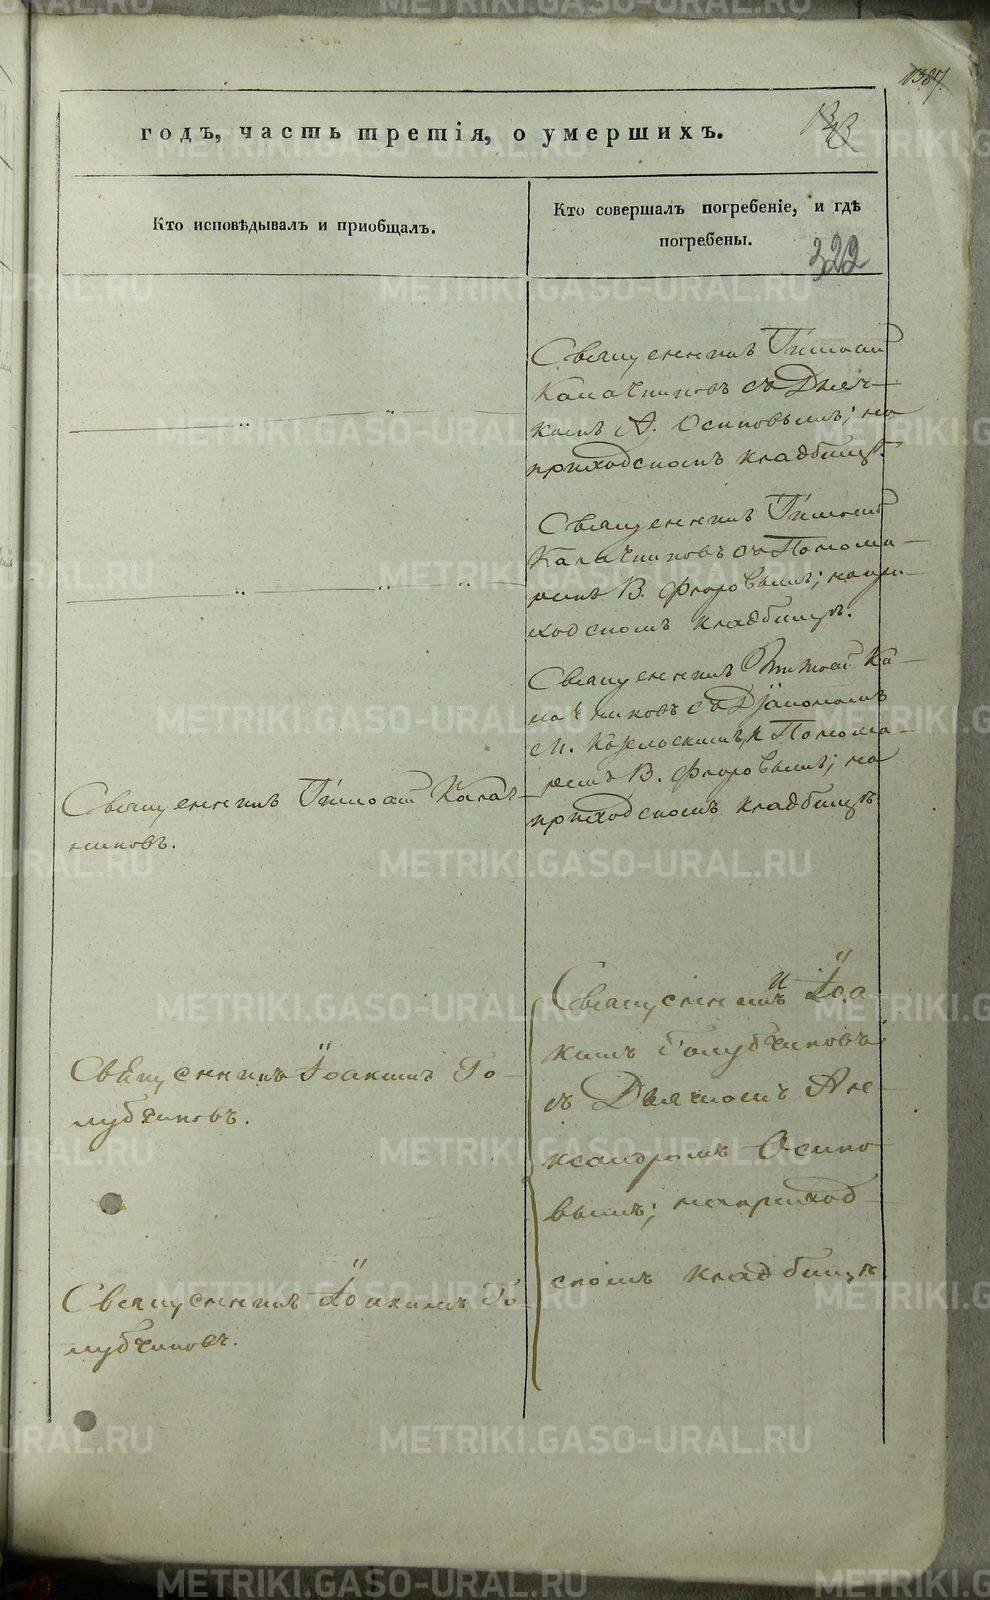 1387.
годъ, часть третія, о умершихъ.
Кто исповѣдывалъ и приобщалъ.
Кто совершалъ погребеніе, и гдѣ
погребены.
322
Священникъ Тимофей
Калачниковъ съ Дьяч-
комъ А. Осиповымъ; на
приходскомъ кладбищѣ.
Священникъ Тимофей
Калачниковъ съ Понома-
ремъ В. Флоровымъ; на при-
ходскомъ кладбищѣ.
Священникъ Тимофей Ка-
лачниковъ съ Діакономъ
М. и Понома-
ремъ В. Флоровымъ; на
приходскомъ кладбищѣ.
Священникъ Тимофей Калач-
никовъ.
Священникъ Іоа
кимъ Голубчиковъ
съ Дьячкомъ Але
ксандромъ Осипо
вымъ; на приход
скомъ кладбищѣ
Священникъ Іоакимъ Го-
лубчиковъ.
Священникъ Іоакимъ Го
лубчиковъ.
METRIKI.GASO-URAL.RU